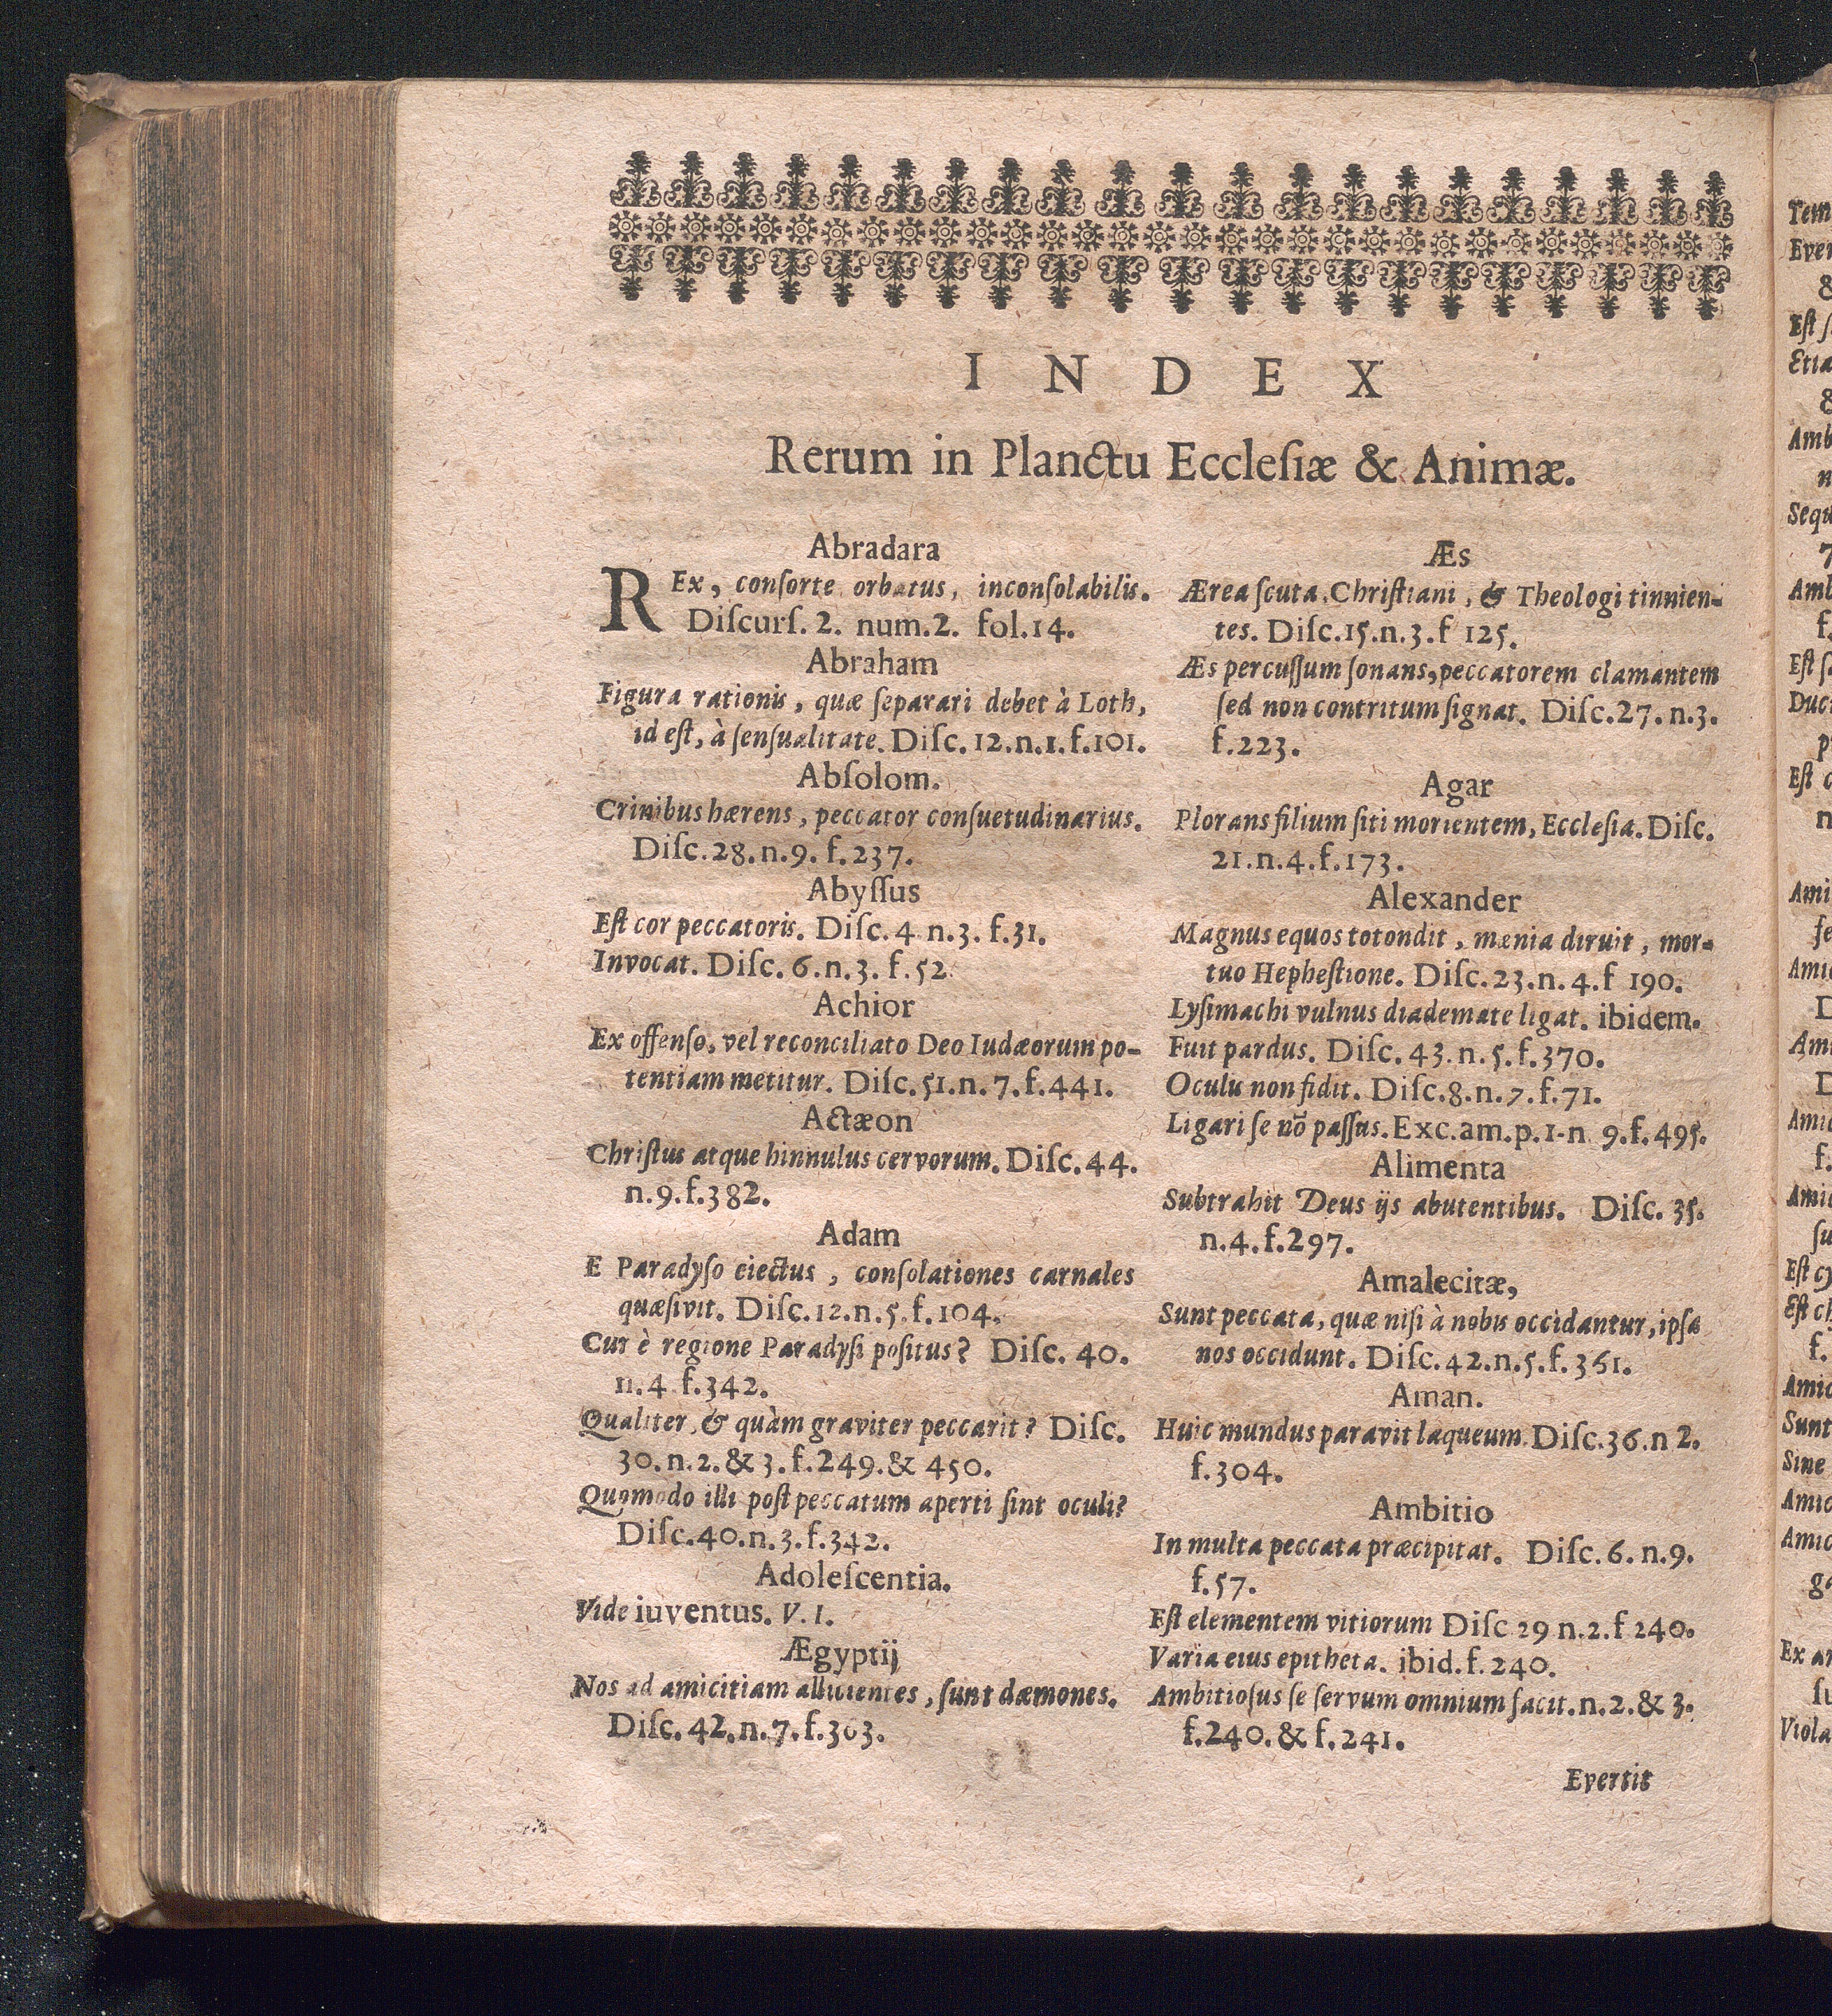 INDEX
Rerum in Planctu Eccleſiæ & Animæ.
Abradara
REx, conſorte orbatus, inconſolabilis.
Diſcurſ. 2. num. 2. fol. 14.
Abraham
Figura rationis, quæ ſeparari debet à Loth,
id eſt, à ſenſualitate. Diſc. 12. n. 1. f. 101.
Abſolom.
Crinibus hærens, peccator conſuetudinarius.
Diſc. 28. n. 9. f. 237.
Abyſſus
Eſt cor peccatoris. Diſc. 4 n. 3. f. 31.
Invocat. Diſc. 6. n. 3. f. 52.
Achior
Ex offenſo, vel reconciliato Deo Iudæorum po-
tentiam metitur. Diſc. 51. n. 7. f. 441.
Actæon
Chriſtus atque hinnulus cervorum. Diſc. 44.
n. 9. f. 382.
Adam
E Paradyſo eiectus, conſolationes carnales
quæſivit. Diſc. 12. n. 5. f. 104.
Cur è regione Paradyſi poſitus? Diſc. 40.
n. 4 f. 342.
Qualiter, & quàm graviter peccarit? Diſc.
30. n. 2. & 3. f. 249. & 450.
Quomodo illi poſt peccatum aperti ſint oculi?
Diſc. 40. n. 3. f. 342.
Adoleſcentia.
Vide iuventus. V. I.
Ægyptij
Nos ad amicitiam allicientes, ſunt dæmones.
Diſc. 42. n. 7. f. 363.
Æs
Ærea ſcuta Chriſtiani, & Theologi tinnien-
tes. Diſc. 15. n. 3. f 125.
Æs percuſſum ſonans, peccatorem clamantem
ſed non contritum ſignat. Diſc. 27. n. 3.
f. 223.
Agar
Plorans filium ſiti morientem, Eccleſia. Diſc.
21. n. 4. f. 173.
Alexander
Magnus equos totondit, mænia diruit, mor-
tuo Hepheſtione. Diſc. 23. n. 4. f 190.
Lyſimachi vulnus diademate ligat. ibidem.
Fuit pardus. Diſc. 43. n. 5. f. 370.
Oculis non fidit. Diſc. 8. n. 7. f. 71.
Ligari ſe nō paſſus. Exc. am. p. 1-n 9. f. 495.
Alimenta
Subtrahit Deus ijs abutentibus. Diſc. 35.
n. 4. f. 297.
Amalecitæ,
Sunt peccata, quæ niſi à nobis occidantur, ipſa
nos occidunt. Diſc. 42. n. 5. f. 361.
Aman.
Huic mundus paravit laqueum. Diſc. 36. n 2.
f. 304.
Ambitio
In multa peccata præcipitat. Diſc. 6. n. 9.
f. 57.
Eſt elementem vitiorum Diſc 29 n. 2. f 240.
Varia eius epitheta. ibid. f. 240.
Ambitioſus ſe ſervum omnium facit. n. 2. & 3.
f. 240. & f. 241.
Evertit